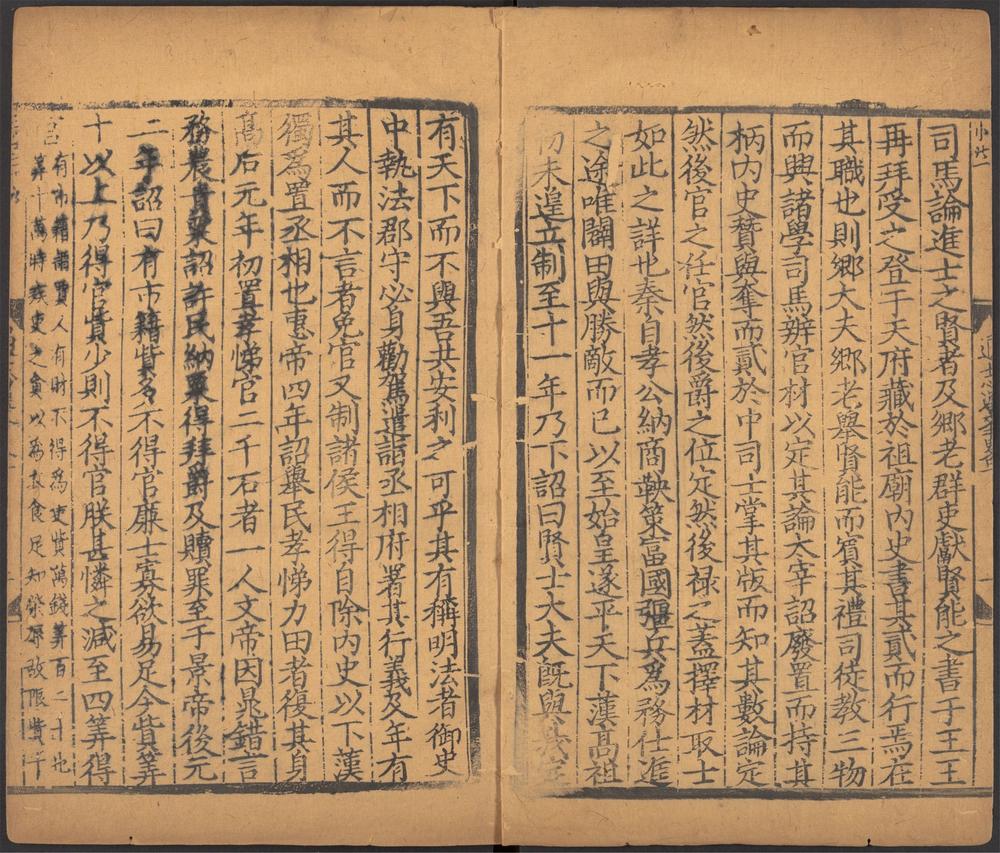 司馬論進士之賢者及鄉老群吏獻賢能之書于王王
再拜受之登于天府藏於祖廟內史書其貳而行焉在
其職也則鄉大夫鄉老舉賢能而賓其禮司徒教三物
而興諸學司馬辨官材以定其論太宰詔廢置而持其
柄內史贊與奪而貳於中司士掌其版而知其數論定
然後官之任官然後爵之位定然後祿之蓋擇材取士
如此之詳也秦自孝公納商鞅策富國彊兵為務仕進
之途唯闢田與勝敵而已以至始皇遂平天下漢高祖
初未遑立制至十一年乃下詔曰賢士大夫既與我定
有天下而不與吾共安利之可乎其有稱明法者御史
中執法郡守必身勸駕遣詣丞相府署其行義及年有
其人而不言者免官又制諸侯王得自除內史以下漢
獨為置丞相也惠帝四年詔舉民孝悌力田者復其身
高后元年初置孝悌官二千石者一人文帝因晁錯言
務農貴粟詔許民納粟得拜爵及贖罪至于景帝後元
二年詔曰有市籍貲多不得官廉士寡欲易足今貲筭
十以上乃得官貲少則不得官朕甚憐之減至四筭得
官
有市籍謂賈人有財不得為吏貲萬錢筭百二十也
筭十萬時疾吏之貪以為衣食足知榮辱故限貲十